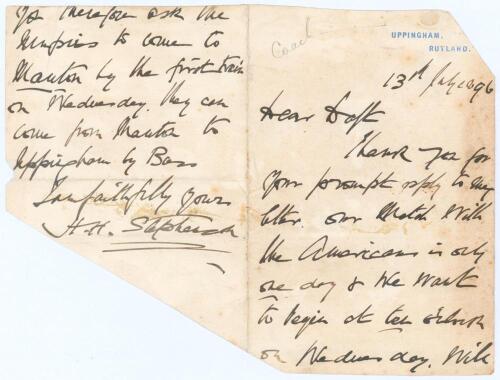 UPPINGHAM,
RUTLAND.
Coach
13th July 1896
Dear Daft
Thank you for
your prompt reply to my
letter. Our Match With
the Americans is only
one day & We Want
to begin at ten o'clock
on Wednesday. Will
you therefore ask the
Umpires to come to
Manton by the first train
on Wednesday. They can
come from Manton to
Uppingham by Buss
I am faithfully yours
H.H. Stephenson